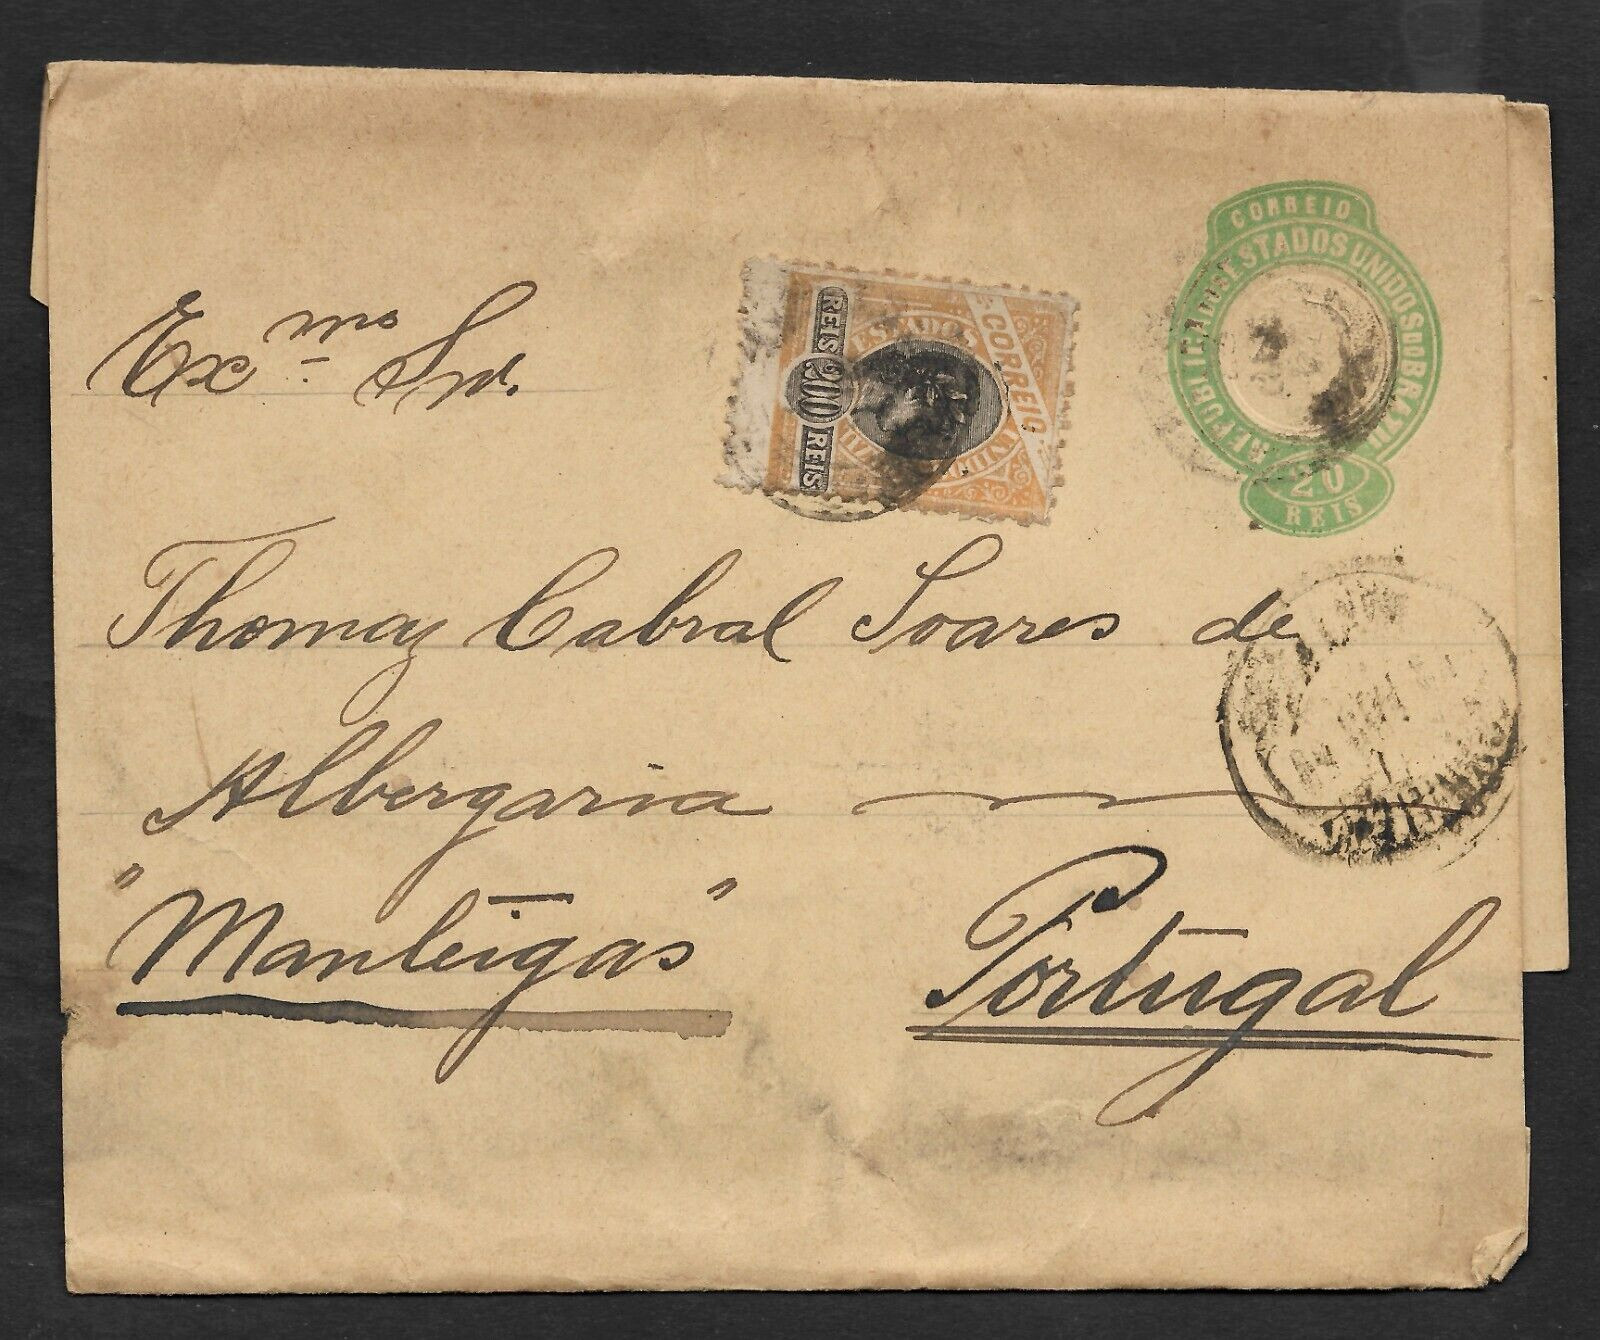 CORREIO
REPUBLICA DOS ESTADOS UNIDOS DO BRAZIL
20
REIS
CORREIO
ESTADOS UNIDOS
REIS 200 REIS
Ex.mo Snr.
Thomaz Cabral Soares de
Albergaria
"Manteigas"
Portugal